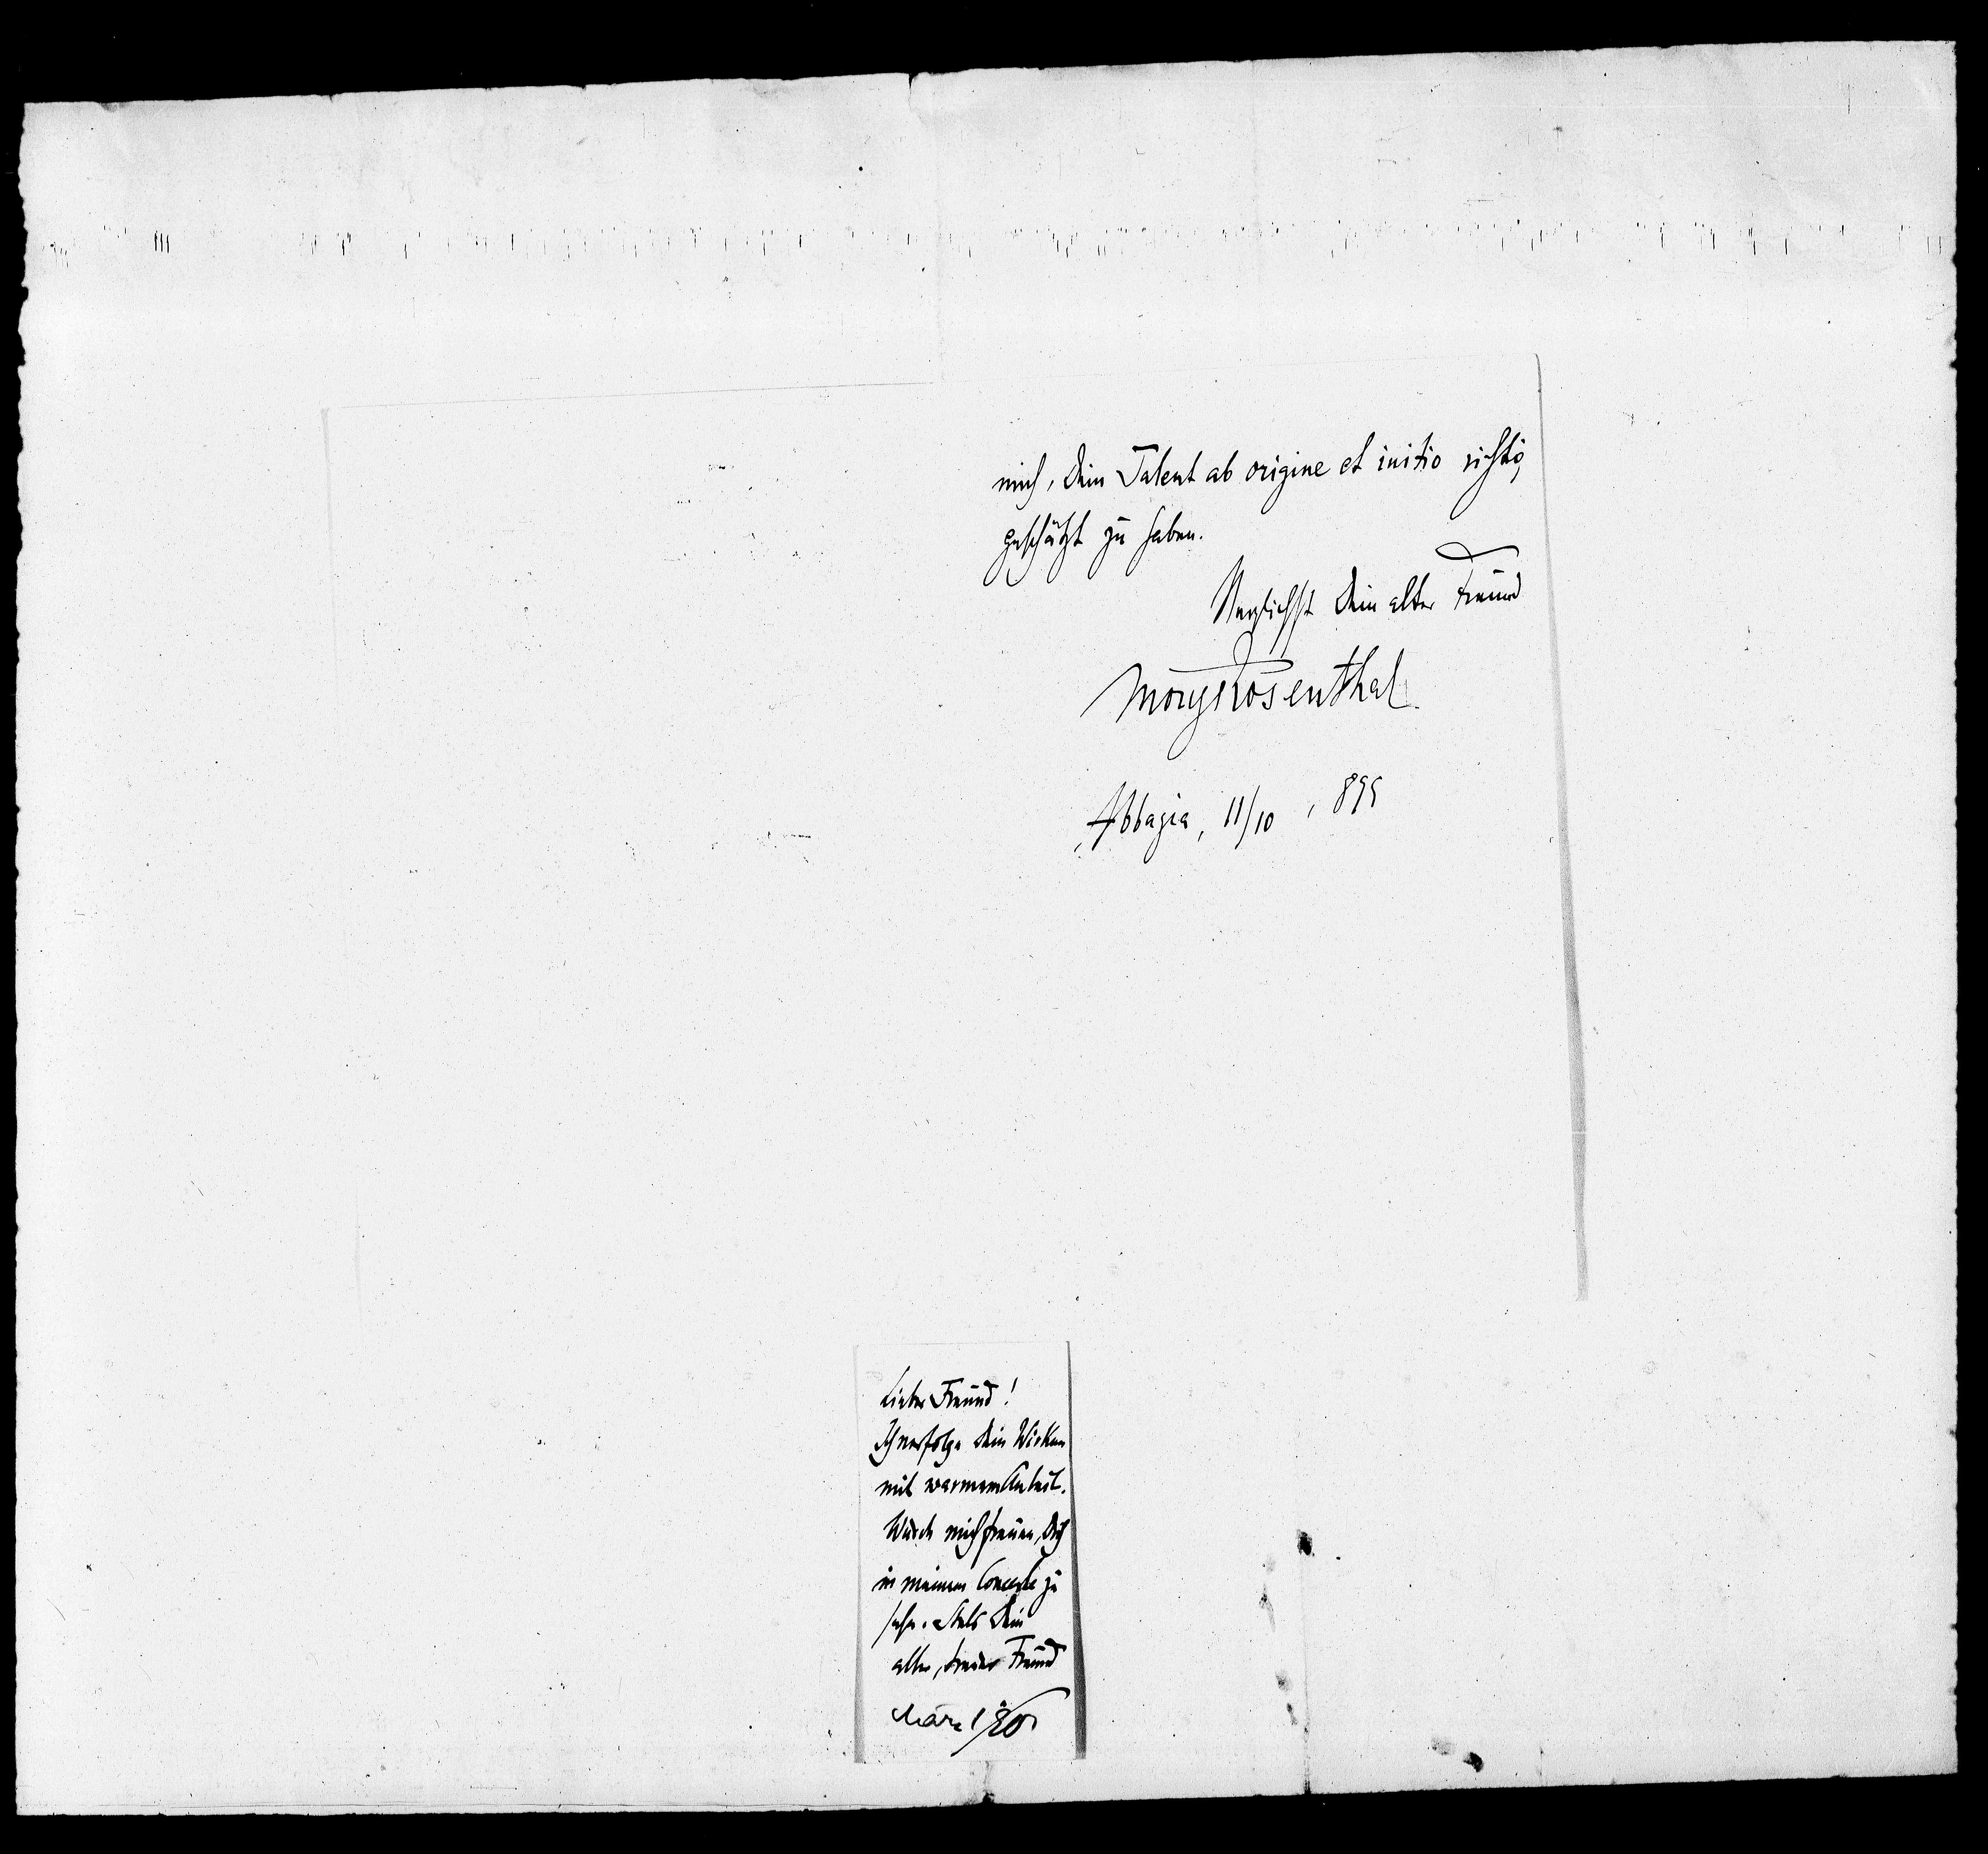 mich, Dein Talent ab origine et initio richtig
geschätzt zu haben.
Herzlichst Dein alter Freund
Moriz Rosenthal
Abbazia, 11/10, 899
Lieber Freund!
Ich verfolge Dein Wirken
mit warmem Anteil.
Würde mich freuen, Dich
in meinem Concerte zu
sehn. Stets Dein
alter, treuer Freund
März